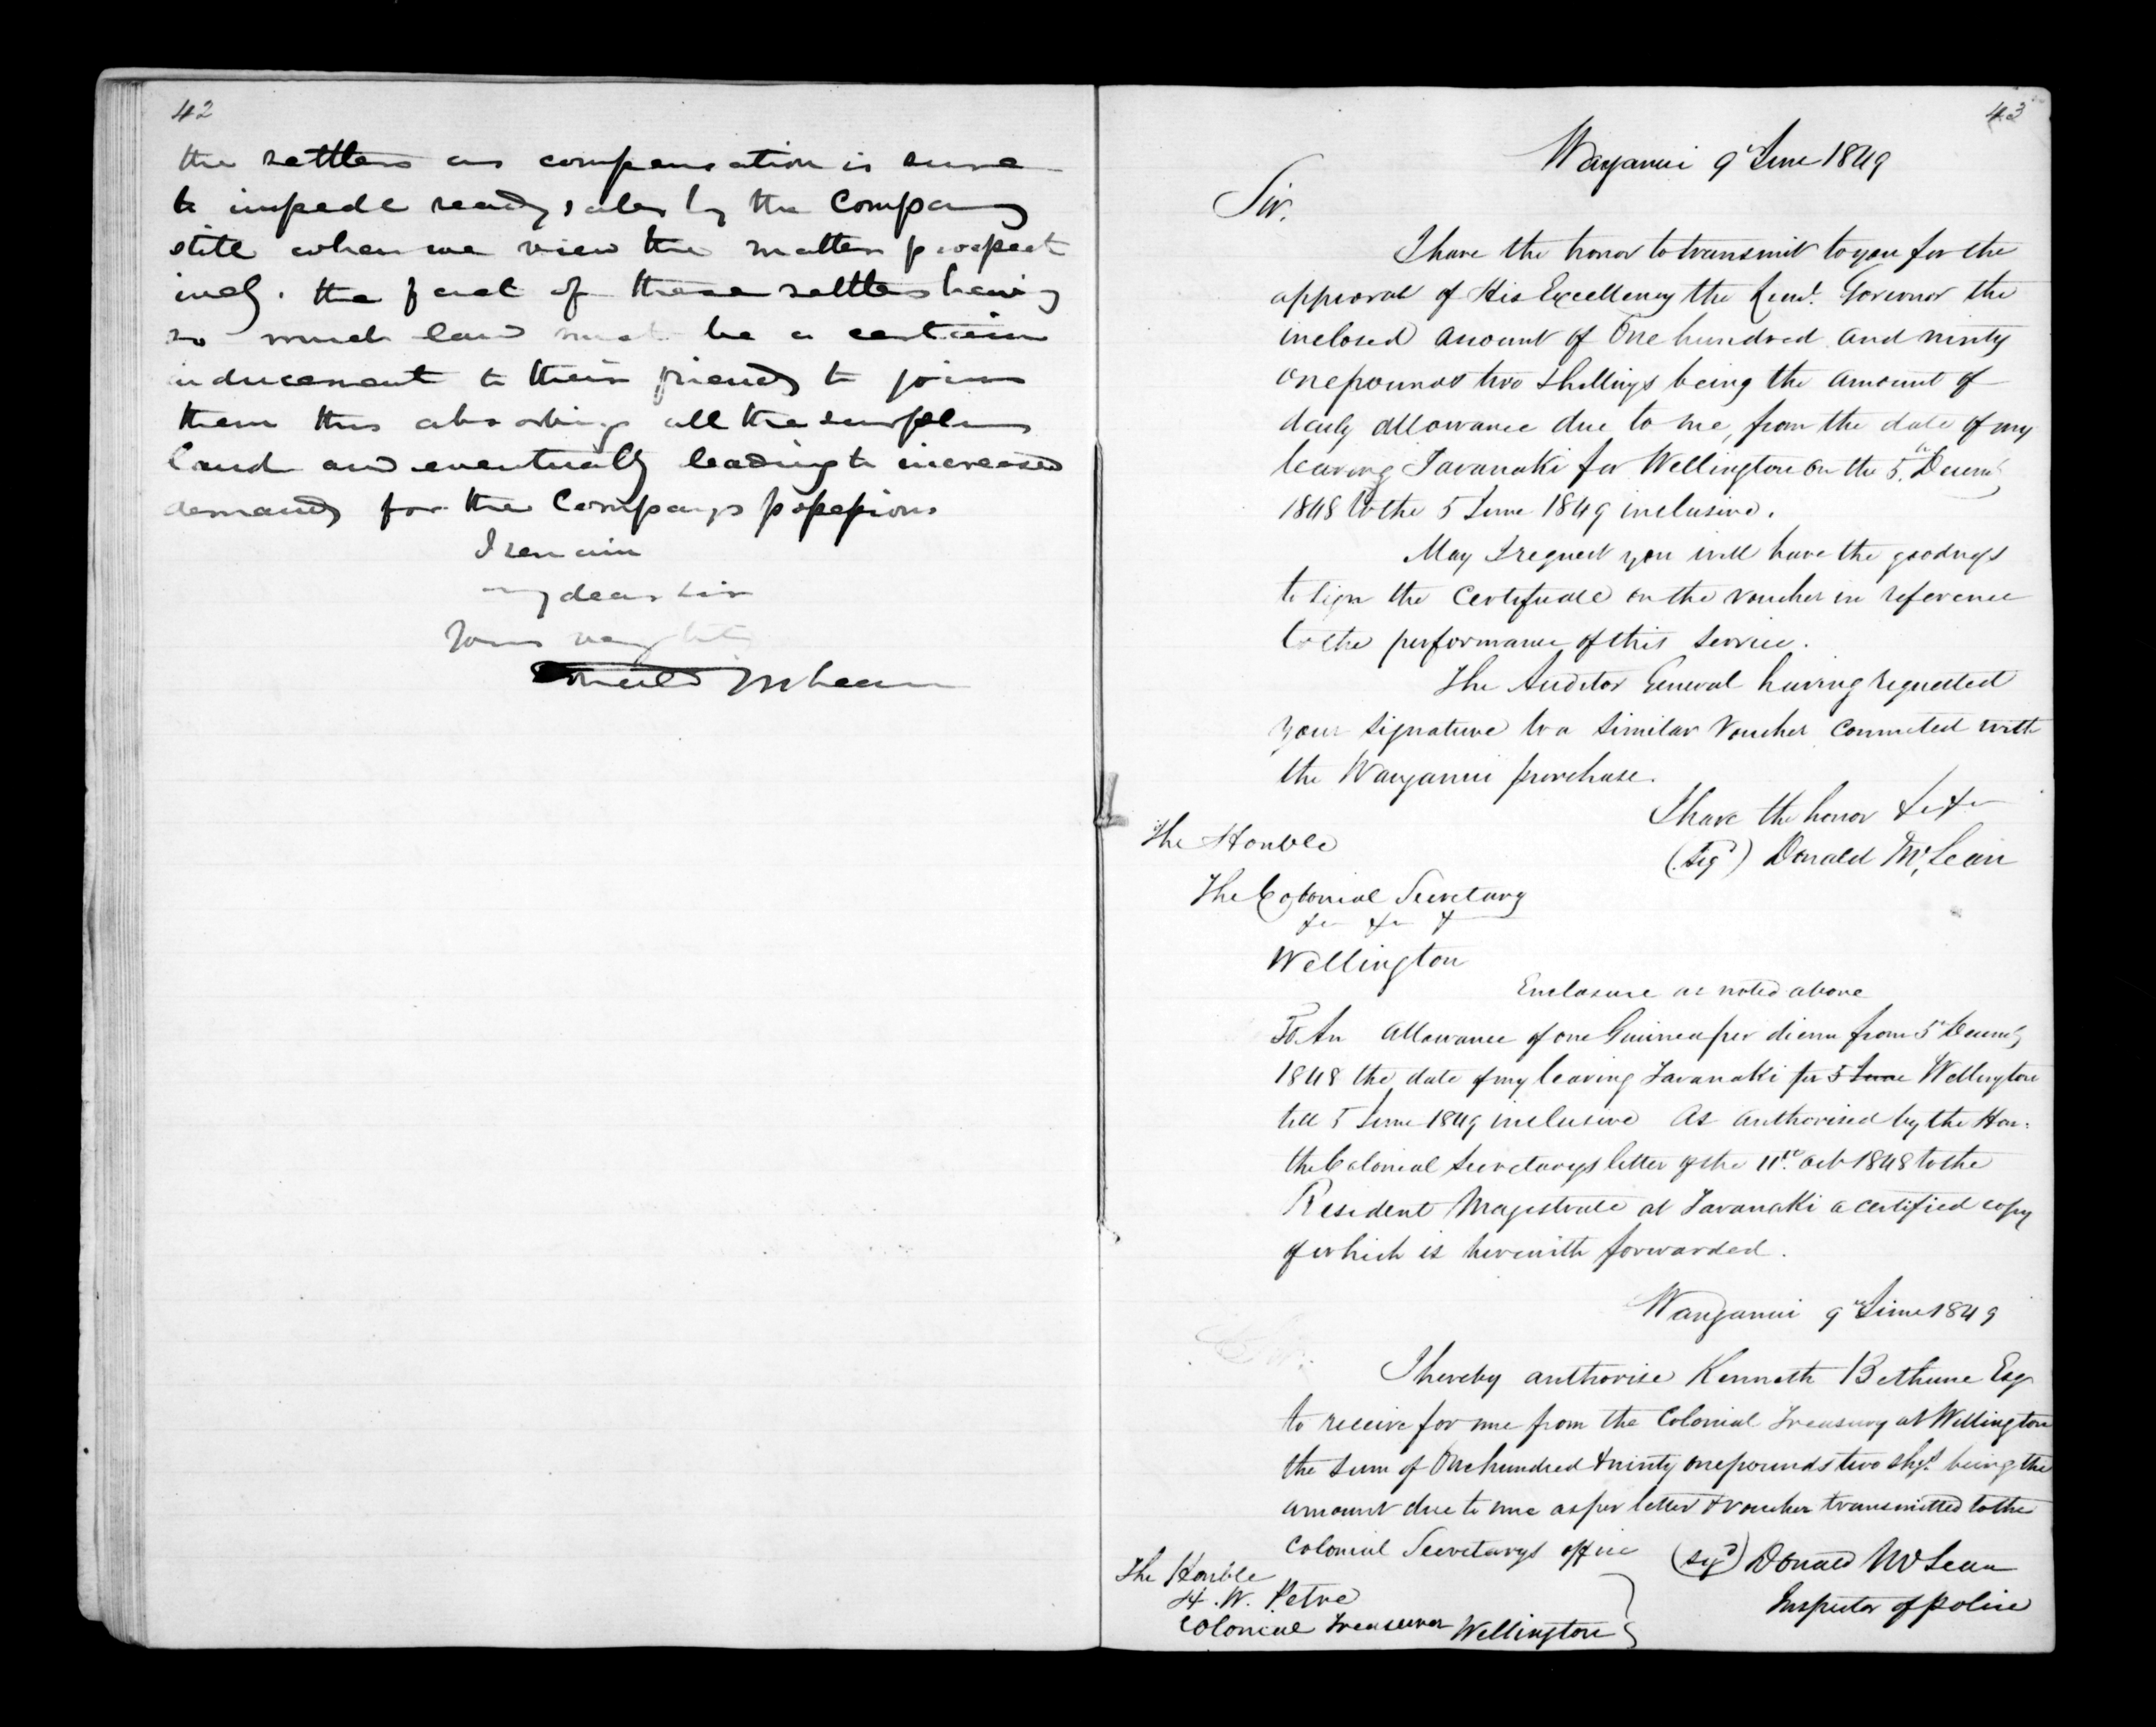 42
the settlers as compensation is sure
to impede ready sales by the Company
still when we view the matter prospect
ively. the fact of these settlers having
so much land must be a certain
inducement to their friends to join
them thus absorbing all the surplus
land and eventually leading to increased
demands for the Companys possessions
I remain
my dear Sir
Yours very
Donald McLean
43
Wanganui 9th June 1849
Sir.
I have the honor to transmit to you for the
approval of His Excellency the Lieut. Governor the
inclosed account of One hundred and ninty
one pounds two Shillings being the amount of
daily allowance due to me, from the date of my
leaving Taranaki for Wellington on the 5th Decemb
1848 to the 5 June 1849 inclusive.
May I request you will have the goodness
to sign the Certificate on the voucher in reference
to the performance of this service.
The Auditor General having requested
your signature to a similar Voucher connected with
the Wanganui purchase.
I have the honor &c &c
(sigd) Donald McLean
The Honble
The Colonial Secretary
&c &c &
Wellington
Enclosure as noted above
To An allowance of one Guinea per diem from 5th Decemb
1848 the date of my leaving Taranaki for 5 June Wellington
till 5 June 1849 inclusive As authorised by the Hon:
the Colonial Secretarys letter of the 11th Oct 1848 to the
Resident Magistrate at Taranaki a certified copy
of which is herewith forwarded.
Wanganui 9th June 1849
I hereby authorise Kenneth Bethune Esq
to receive for me from the Colonial Treasury at Wellington
the sum of One hundred & ninty one pounds two shgs. being the
amount due to me as per letter & voucher transmitted to the
Colonial Secretarys office
(sigd) Donald McLean
Inspector of police
The Honble
H. W. Petre
Colonial Treasurer Wellington